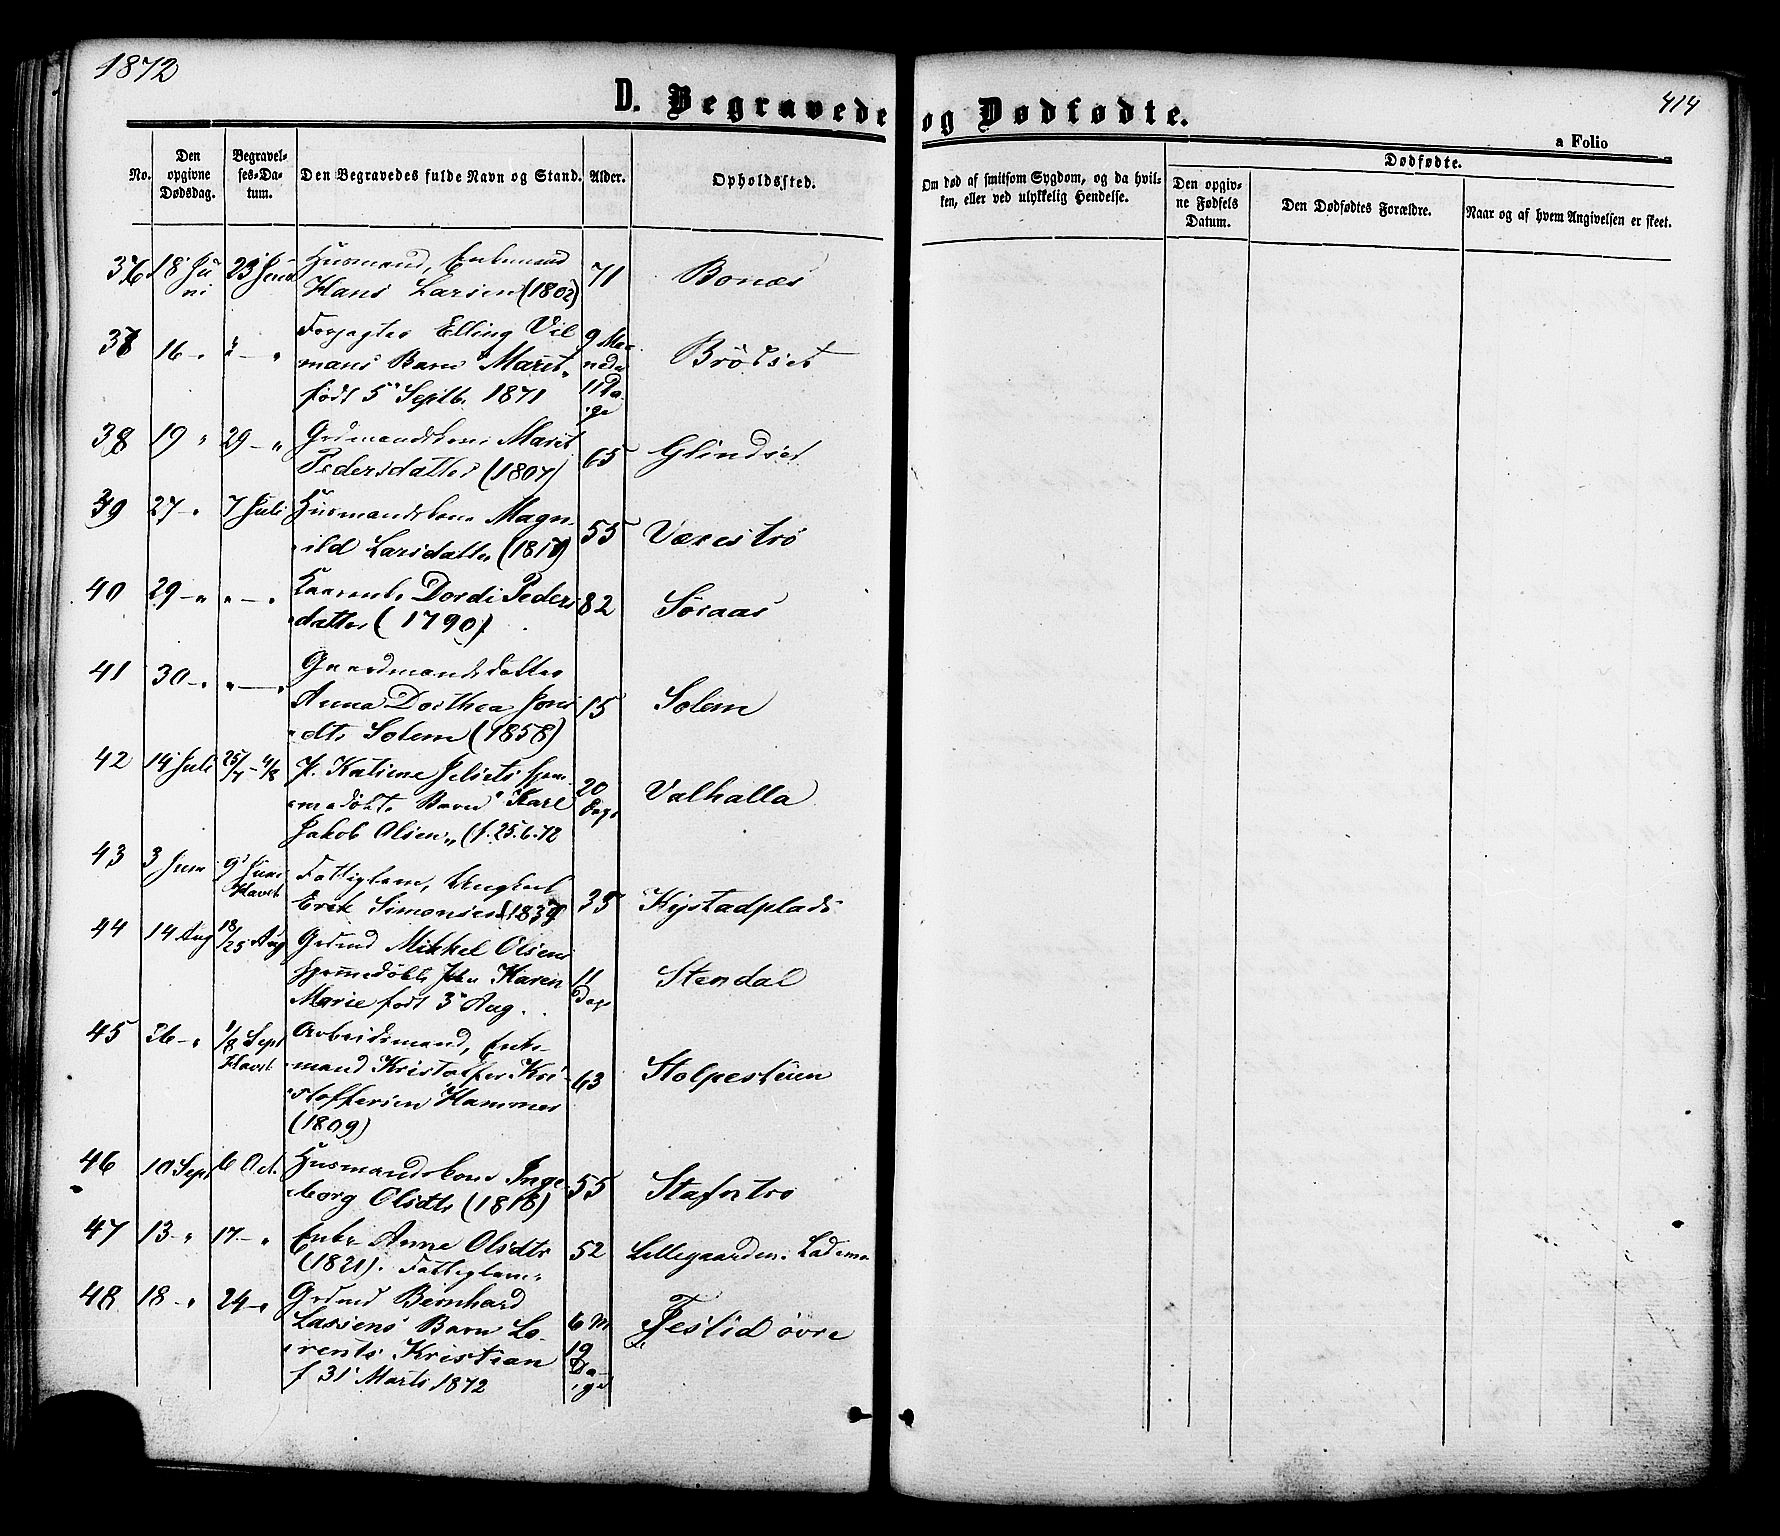 1872
D. Begravede og Dødfødte.
414
a Folio
No.
Den opgivne Dødsdag.
Begravelses-Datum.
Den Begravedes fulde Navn og Stand.
Alder.
Opholdssted.
Om død af smitsom Sygdom, og da hvilken, eller ved ulykkelig Hendelse.
Dødfødte.
Den opgivne Fødsels Datum.
Den Dødfødtes Forældre.
Naar og af hvem Angivelsen er skeet.
36 18' Ju 23 Juni Husmand, Enkemand
ni Hans Larsen (1802) 71 Bonæs
37 16 - " " - " Forpagter Elling Vil 9 Maa
mans Barn "Marit" neder Brødset
født 5' Septb. 1871 11 Da
ge
38 19 " 29 - " Grdmandskone Marit
Pedersdatter (1807) 65 Glindset
39 27 - " 7 Juli Husmandskone Magn
ild Larsdatter (1817) 55 Værestrø
40 29 - " " - " Kaarenk. Dordi Peders
datter (1790) 82 Søraas
41 30 - " " - " Gaardmandsdatter
Anna Dorthea Jons 15 Solem
dtr Solem (1858)
42 14 Juli 25/7 - 4/8 P. Katrine Jelsets hjem
medøbte Barn "Karl 20 Dage Valhalla
Jakob Olsen" (f. 25.6.72
43 3 Juni 9' Juni Fattiglem, Ungkarl
Havet Erik Simonsen (1837) 35 Kystadplads
44 14 Aug 18/25 Aug Grdmd Mikkel Olsens
hjemmedøbte Karen 11 Dage Stendal
Marie født 3' Aug.
45 26 - " 1/8 Sept Arbeidsmand, Enke
Havet mand Kristoffer Kri
stoffersen Hammer 63 Stolpestuen
(1809)
46 10 Sept 6 Oct. Husmandskone Inge
borg Olsdtr (1818) 55 Stafntrø
47 13 - " 17 - " Enke Anne Olsdtr 52 Lillegaarden.
(1821). Fattiglem.
48 18 - " 24 - " Grdmd Bernhard
Larsens Barn Lo 6 M Tjeslid øvre
rents Kristian 19
f 31' Marts 1872 Da
ge